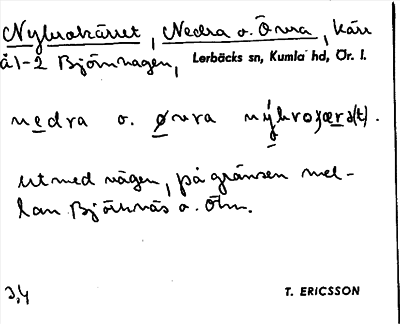 Nybrokärret, Nedra o. Övra, kärr
å 1-2 Björnhagen, Lerbäcks sn, Kumla hd, Ör. l.
nedra o. øvra nýbroȥærə(t).
utmed vägen, på gränsen mel-
lan Björknäs o. Ölm.
3,4 T. ERICSSON